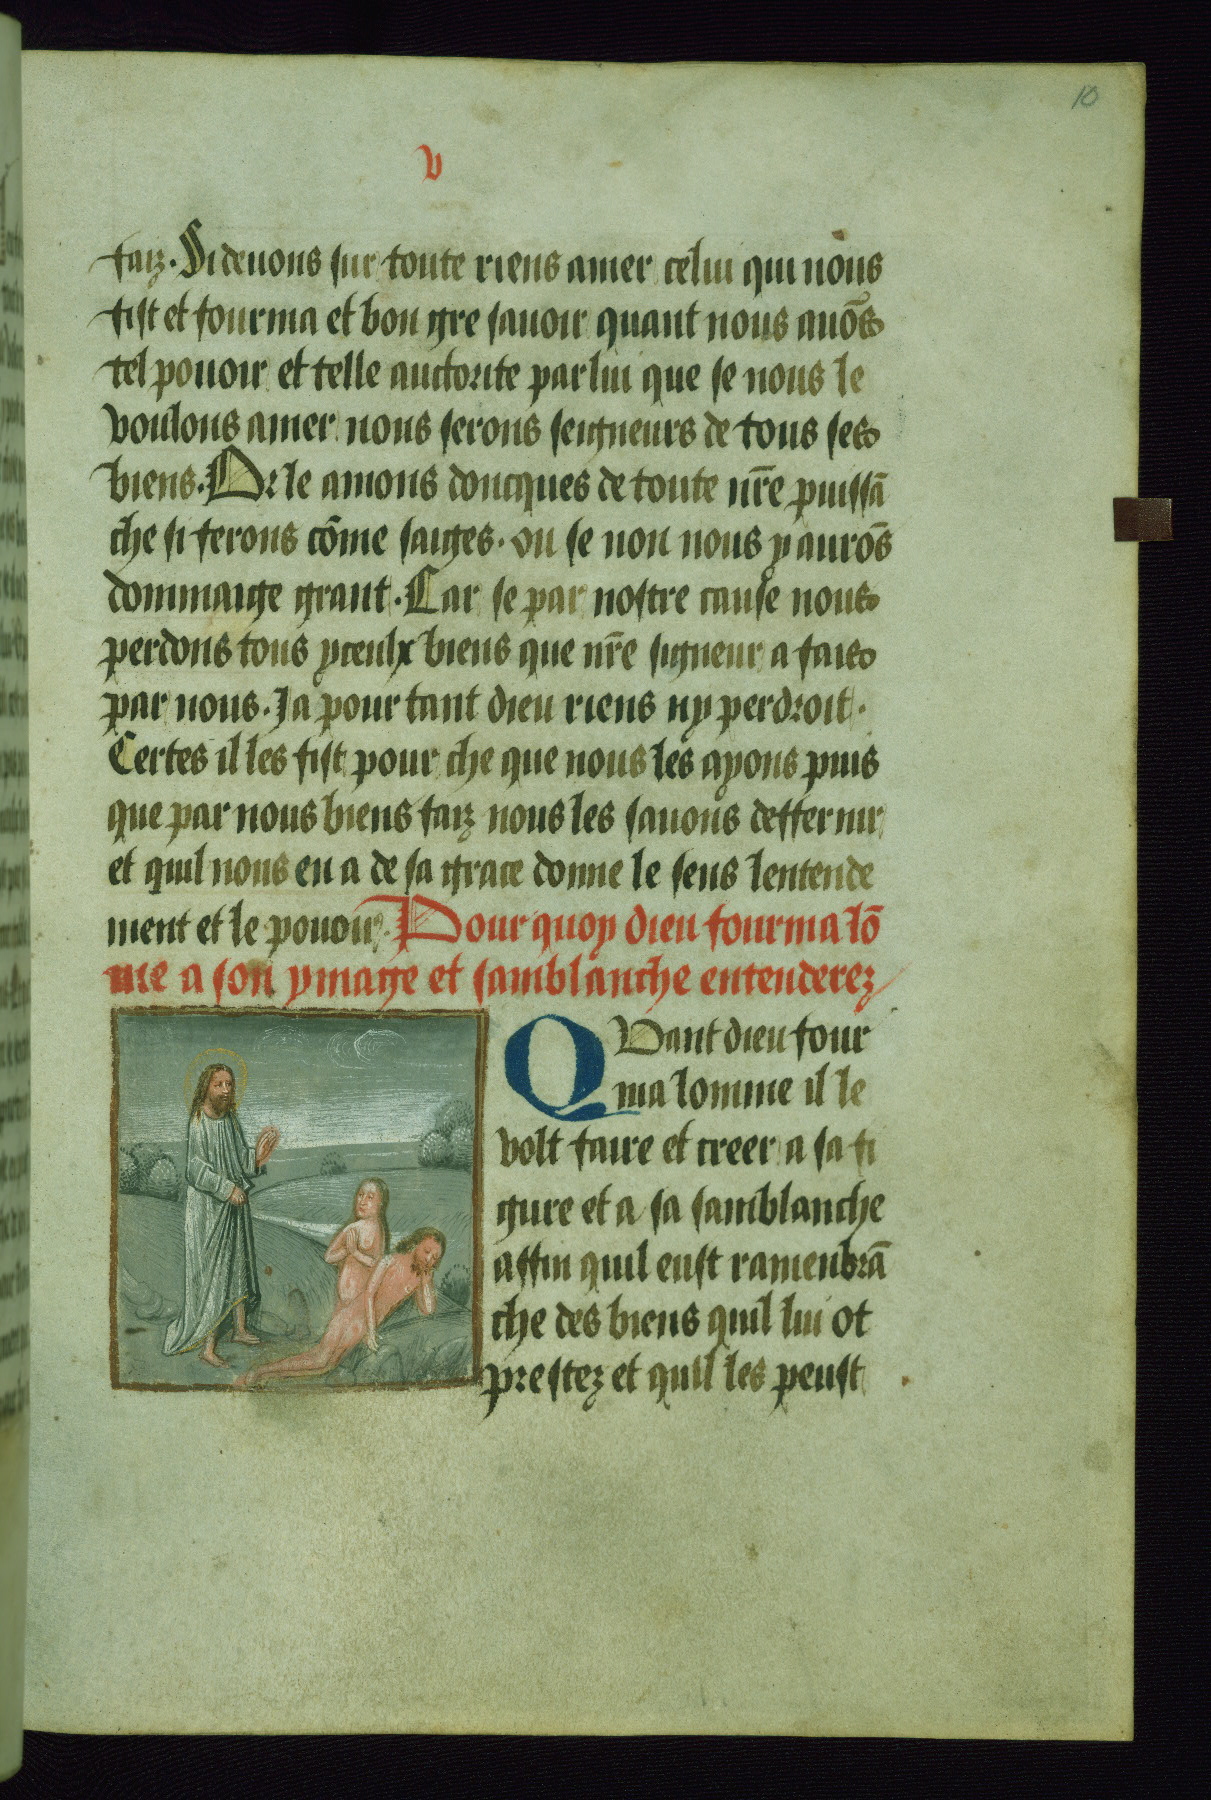 10
v
faiz. Si deuons sur toute riens amer celui qui nous
fist et fourma et bon gre sauoir quant nous auōs
tel pouoir et telle auctorite par lui que se nous le
voulons amer nous serons seigneurs de tous ses
biens. Or le amons doncques de toute nr̄e puissā
che si ferons cōme saiges. ou se non nous y aurōs
dommaige grant. Car se par nostre cause nous
perdons tous yceulx biens que nr̄e signeur a fais
par nous. Ja pour tant dieu riens ny perdroit.
Certes il les fist pour che que nous les ayons puis
que par nous biens faiz nous les sauons desseruir
et quil nous en a de sa grace donne le sens lentende
ment et le pouoir. Pour quoy dieu fourma lō
me a son ymage et samblanche entenderez
Quant dieu four
ma lomme il le
volt faire et creer a sa fi
gure et a sa samblanche
affin quil eust ramenbrā
che des biens quil lui ot
prestez et quil les peust